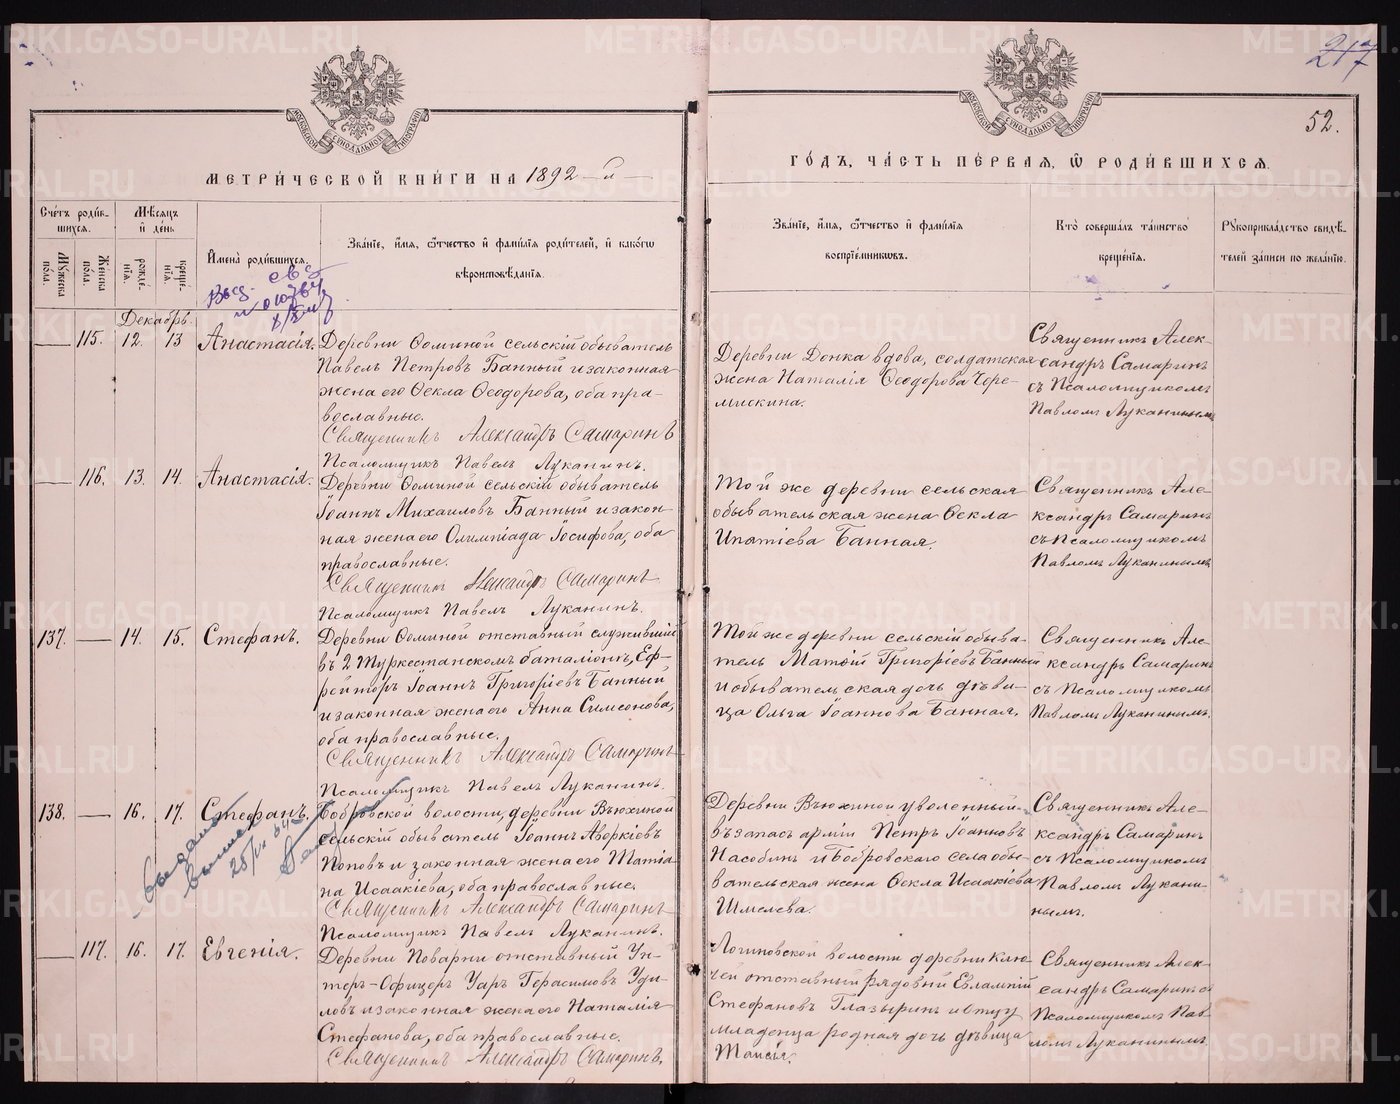 217
52.
МОСКОВСКОЙ СѴНОДАЛЬНОЙ ТИПОГРАФІИ
МОСКОВСКОЙ СѴНОДАЛЬНОЙ ТИПОГРАФІИ
МЕТРИ́ЧЕСКОЙ КНИ́ГИ НА 1892 –й–
ГО́ДЪ, ЧА́СТЬ ПЕ́РВАЯ, Ѡ РОДИ́ВШИХСЯ.
Счетъ роди́вшихся.
Мужеска пола.
Женска пола.
Мѣсяцъ и день
рожденія.
крещенія.
Имена родившихся.
Зва́ніе, имя, ѻтчество и фамилія родителей, и какогѡ вѣроисповѣданія.
Зва́ніе, имя, ѻтчество и фамилія воспріемниковъ.
Кто совершалъ таинство крещенія.
Рукоприкладство свидѣтелей записи по желанію.
Декабрь.
115. 12. 13 Анастасія.
Деревни Ѳоминой сельскій обыватель
Павелъ Петровъ Банный и законная
жена его Ѳекла Ѳеодорова, оба пра-
вославные.
Священникъ Александръ Самаринъ
Псаломщикъ Павелъ Луканинъ.
Деревни Донка вдова, солдатская
жена Наталія Ѳеодорова Чере-
мискина.
Священникъ Алек-
сандръ Самаринъ
съ Псаломщикомъ
Павломъ Луканинымъ
116. 13. 14. Анастасія.
Деревни Ѳоминой сельскій обыватель
Іоаннъ Михаиловъ Банный и закон-
ная жена его Олимпіада Іосифова, оба
православные.
Священникъ Александръ Самаринъ
Псаломщикъ Павелъ Луканинъ.
Той же деревни сельская
обывательская жена Ѳекла
Ипатіева Банная.
Священникъ Але-
ксандръ Самаринъ
съ Псаломщикомъ
Павломъ Луканинымъ
137. 14. 15. Стефанъ.
Деревни Ѳоминой отставный служившій
въ 2 Туркестанскомъ баталіонѣ, Еф-
рейторъ Іоаннъ Григоріевъ Банный
и законная жена его Анна Симеонова,
оба православные.
Священникъ Александръ Самаринъ
Псаломщикъ Павелъ Луканинъ.
Той же деревни сельскій обыва-
тель Матѳій Григоріевъ Банный
и обывательская дочь дѣви-
ца Ольга Іоаннова Банная.
Священникъ Але-
ксандръ Самаринъ
съ Псаломщикомъ
Павломъ Луканинымъ.
138. 16. 17. Стефанъ.
Бобровской волости, деревни Вьюхиной
сельскій обыватель Іоаннъ Аверкіевъ
Поповъ и законная жена его Татіа-
на Исаакіева, оба православные.
Священникъ Александръ Самаринъ
Псаломщикъ Павелъ Луканинъ.
Деревни Вьюхиной уволенный
въ запасъ арміи Петръ Іоанновъ
Насобинъ и Бобровскаго села обы-
вательская жена Ѳекла Исаакіева
Шмелева.
Священникъ Але-
ксандръ Самаринъ
съ Псаломщикомъ
Павломъ Лукани-
нымъ.
выдана
выписка
117. 16. 17. Евгенія.
Деревни Поварни отставный Ун-
теръ-Офицеръ Уаръ Герасимовъ Уди-
ловъ и законная жена его Наталія
Стефанова, оба православные.
Священникъ Александръ Самаринъ.
Логиновской волости деревни Клю-
чей отставный рядовый Евлампій
Стефановъ Глазыринъ и отцу
младенца родная дочь дѣвица
Таисія.
Священникъ Алек-
сандръ Самаринъ съ
Псаломщикомъ Пав-
ломъ Луканинымъ.
METRIKI.GASO-URAL.RU